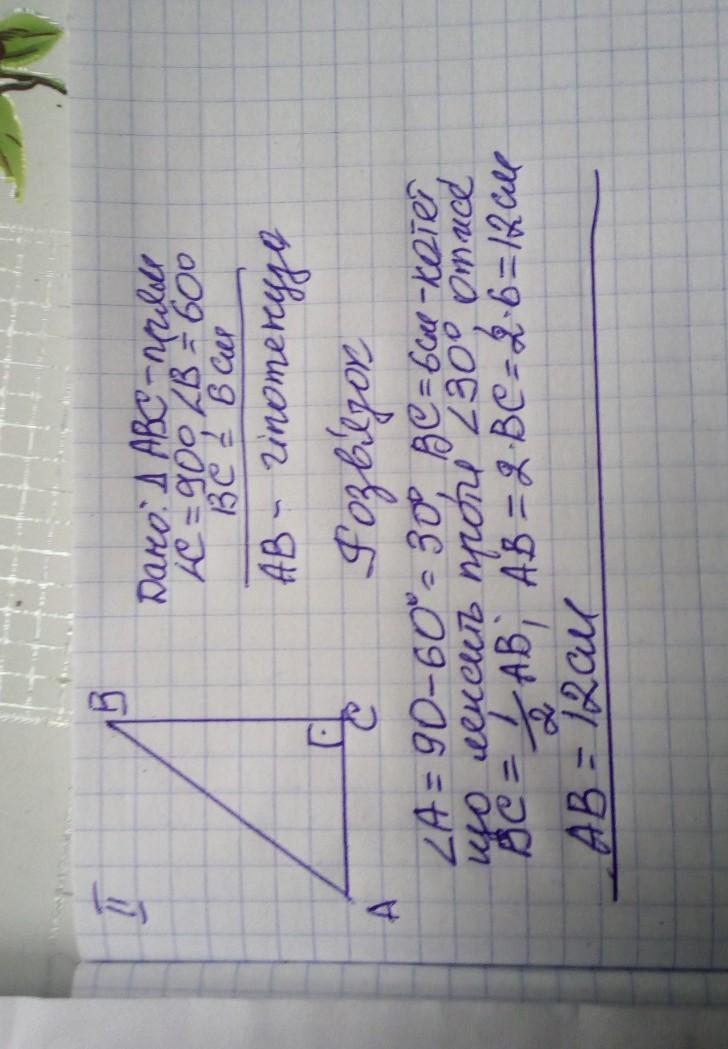 II
B
A
C
Дано: Δ ABC - прям
∠C = 90° ∠B = 60°
BC = 6 см
AB - гіпотенуза
Розв'язок
∠A = 90-60° = 30° BC = 6см - катет
що лежить проти ∠30° отже
BC = 1/2 AB; AB = 2·BC = 2·6 = 12 см
AB = 12 см